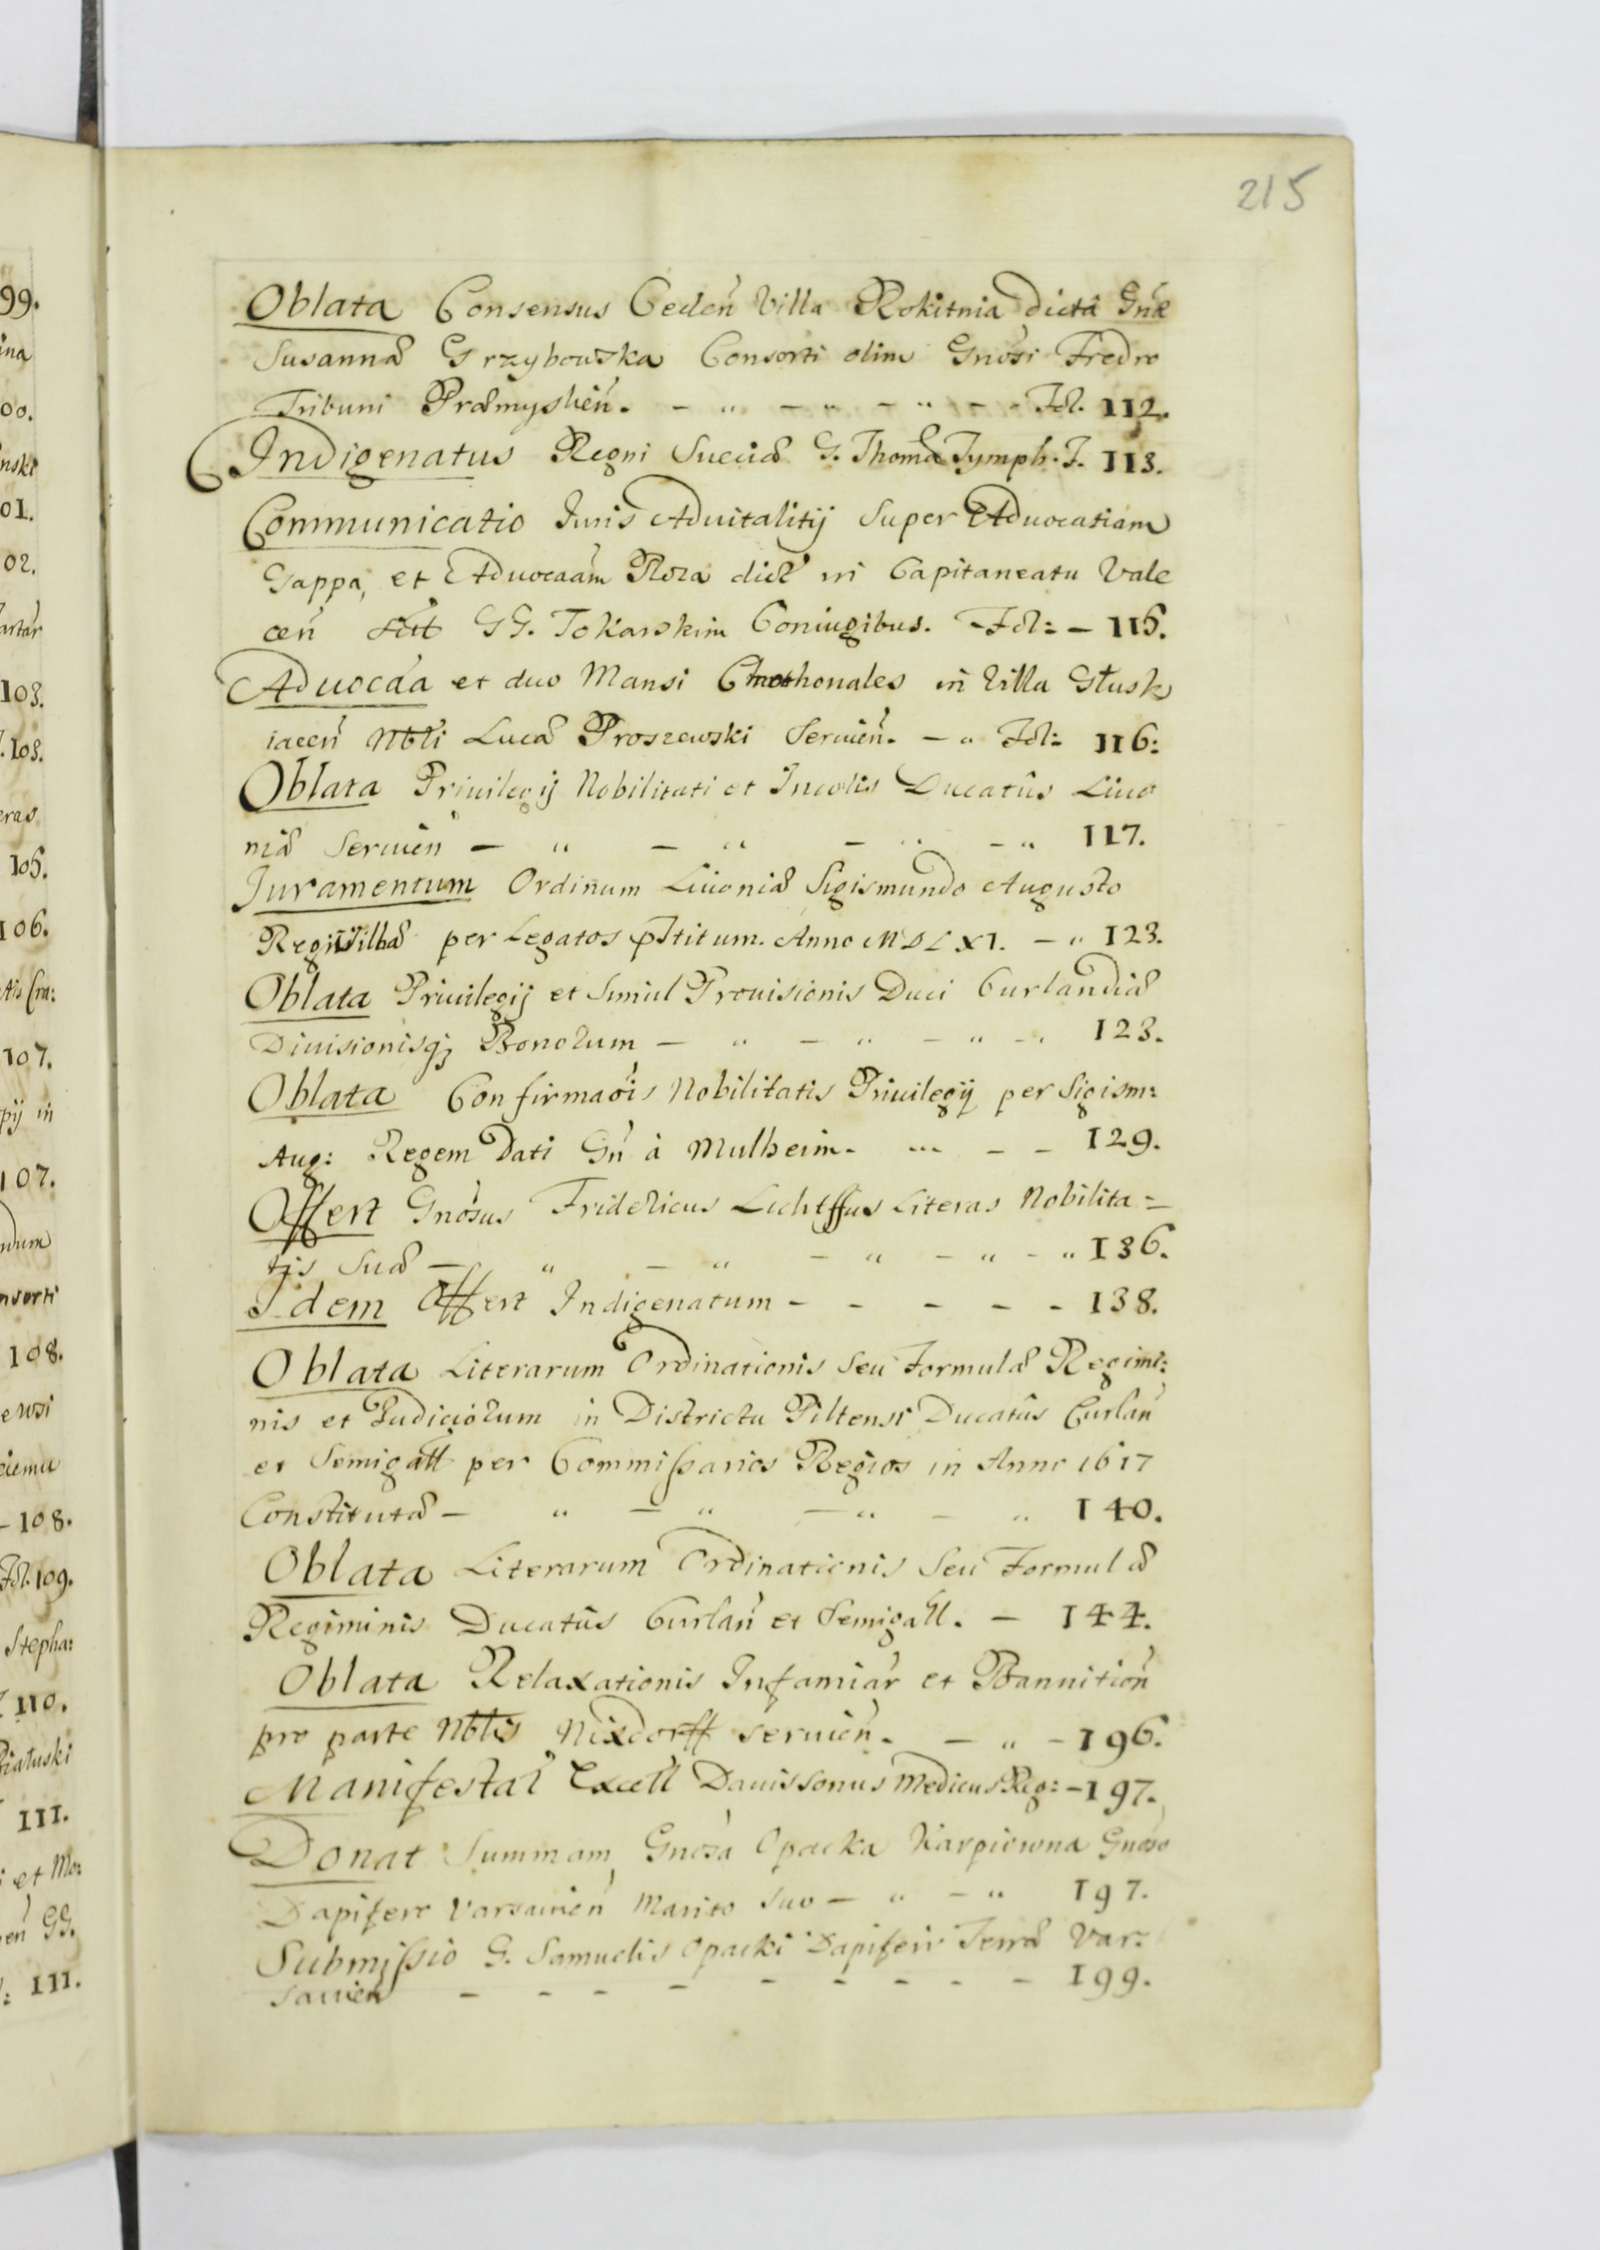 215
Oblata Consensus Ceden Villa Rokitnia dicta Gnæ
Susannæ Grzybowska Consorti olim Gnosi Fredro
Tribuni Præmyslien. - " - " - " - - Fol. 112.
Indigenatus Regni Sueciæ G. Thomæ Tymph. F. 113.
Communicatio Iuris Aduitalitij Super Aduocatiam
Gappa, et Aduocaam Roza dict in Capitaneatu Vale
cen GG. Tokarskim Coniugibus. - Fol: - 115.
Aduocaa et duo Mansi Cmethonales in Villa Głusk
iacen Nbli Lucæ Proszewski Seruien. - " Fol: 116:
Oblata Priuilegij Nobilitati et Incolis Ducatûs Liuo
niæ Seruien - " - " - " - " 117.
Iuramentum Ordinum Liuoniæ Sigismundo Augusto
Regi Vilnæ per Legatos pstitum. Anno MDLXI. - " 123.
Oblata Priuilegij et Simul Prouisionis Duci Curlandiæ
Diuisionisq; Bonorum - " - " - " - " 123.
Oblata Confirmaois Nobilitatis Priuilegij per Sigism:
Aug: Regem Dati Gn à Mulheim. ... - - 129.
Offert Gnosus Fridericus Lichtffus Literas Nobilita=
tis Suæ - " - " - " - " - " 136.
Idem Offert Indigenatum - - - - - 138.
Oblata Literarum Ordinationis Seu Formulæ Regimi:
nis et Iudiciorum in Districtu Piltensi Ducatûs Curlan
et Semigall per Commissarios Regios in Anno 1617
Constitutæ - " - " - " - " 140.
Oblata Literarum Ordinationis Seu Formulæ
Regiminis Ducatûs Curlan et Semigall. - 144.
Oblata Relaxationis Infamiar et Bannition
pro parte Nblis Nixdorff seruien. - " - 196.
Manifestat Excell Dauissonus Medicus Reg: - 197.
Donat Summam Gnosa Opacka Karpiowna Gnoso
Dapifero Varsauien Marito Suo - " - " 197.
Submissio G. Samuelis Opacki Dapiferi Terræ Var:
sauien - - - - - - - - 199.
99.
ina
00.
nski
01.
02.
artar
103.
103.
eras
105.
106.
107.
pij in
107.
nsorti
108.
ewsi
- 108.
Fol. 109.
Stepha:
110.
111.
et Mo:
en GG.
: 111.